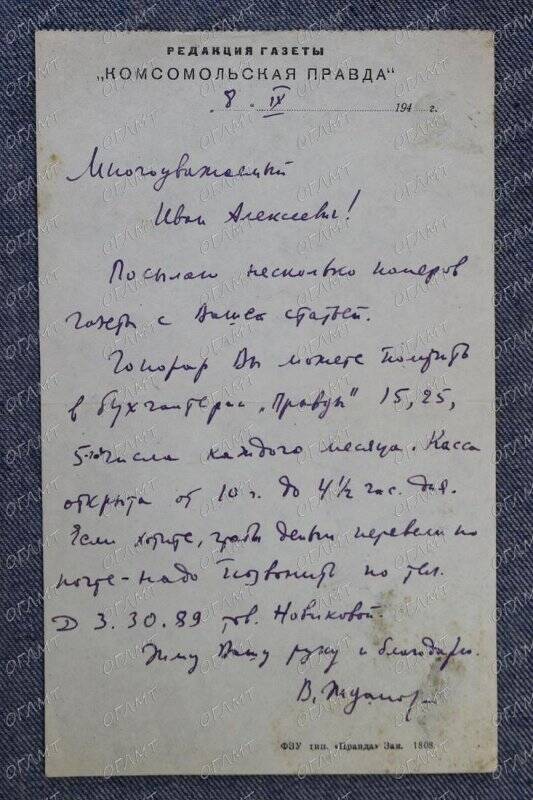 РЕДАКЦИЯ ГАЗЕТЫ
„КОМСОМОЛЬСКАЯ ПРАВДА“
„8“ IX 194 г.
Многоуважаемый
Иван Алексеевич!
Посылаю несколько номеров
газеты с Вашей статьей.
Гонорар Вы можете получить
в бухгалтерии „Правды“ 15, 25,
5-го числа каждого месяца. Касса
открыта от 10 ч. до 4 1/2 час. дня.
Если хотите, чтобы деньги перевели по
почте - надо позвонить по тел.
Д 3.30.89 тов. Новиковой.
Жму Вашу руку и благодарю.
В.
ФЗУ тип. «Правда» Зак. 1808